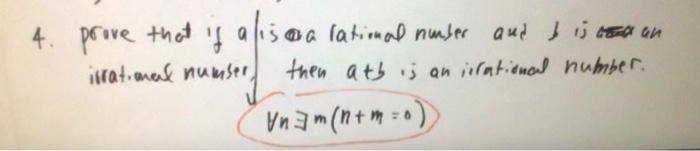 4. prove that if a is a rational number and b is an
irrational number, then a+b is an irrational number.
∀n∃m(n+m=0)